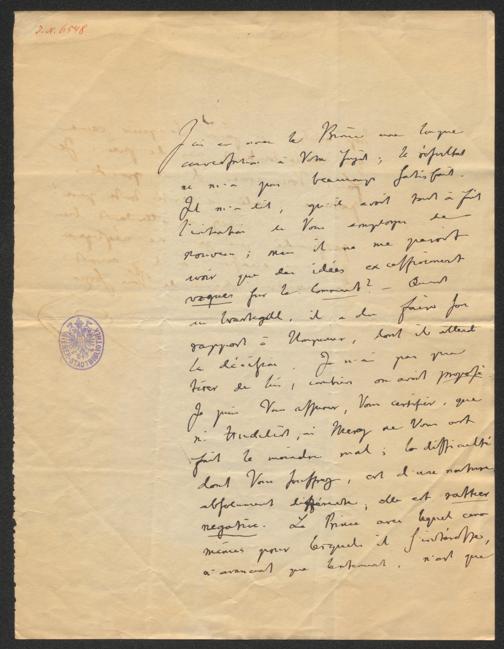 J.N. 6548
J'ai eu avec le Prince une longue
conversation à Votre sujet; le résultat
ne m'a pas beaucoup satisfait.
Il m'a dit, qu'il avoit tout à fait
l'intention de Vous employer de
nouveau; mais il ne me paroit
avoir que des idées excessivement
vagues sur le Comment? - Quant
au, il a du faire son
rapport à l'Empereur, dont il attend
la décision. Je n'ai pas pu
tirer de lui, combien on avoit proposé
Je puis Vous assurer, Vous certifier, que
ni, ni Mercy ne Vous ont
fait le moindre mal; la difficulté
dont Vous souffrez, est d'une nature
absolument différente; elle est
negative. Le Prince avec lequel ceux
mêmes pour lesquels il s'intéresse,
n'avancent que lentement, n'est que